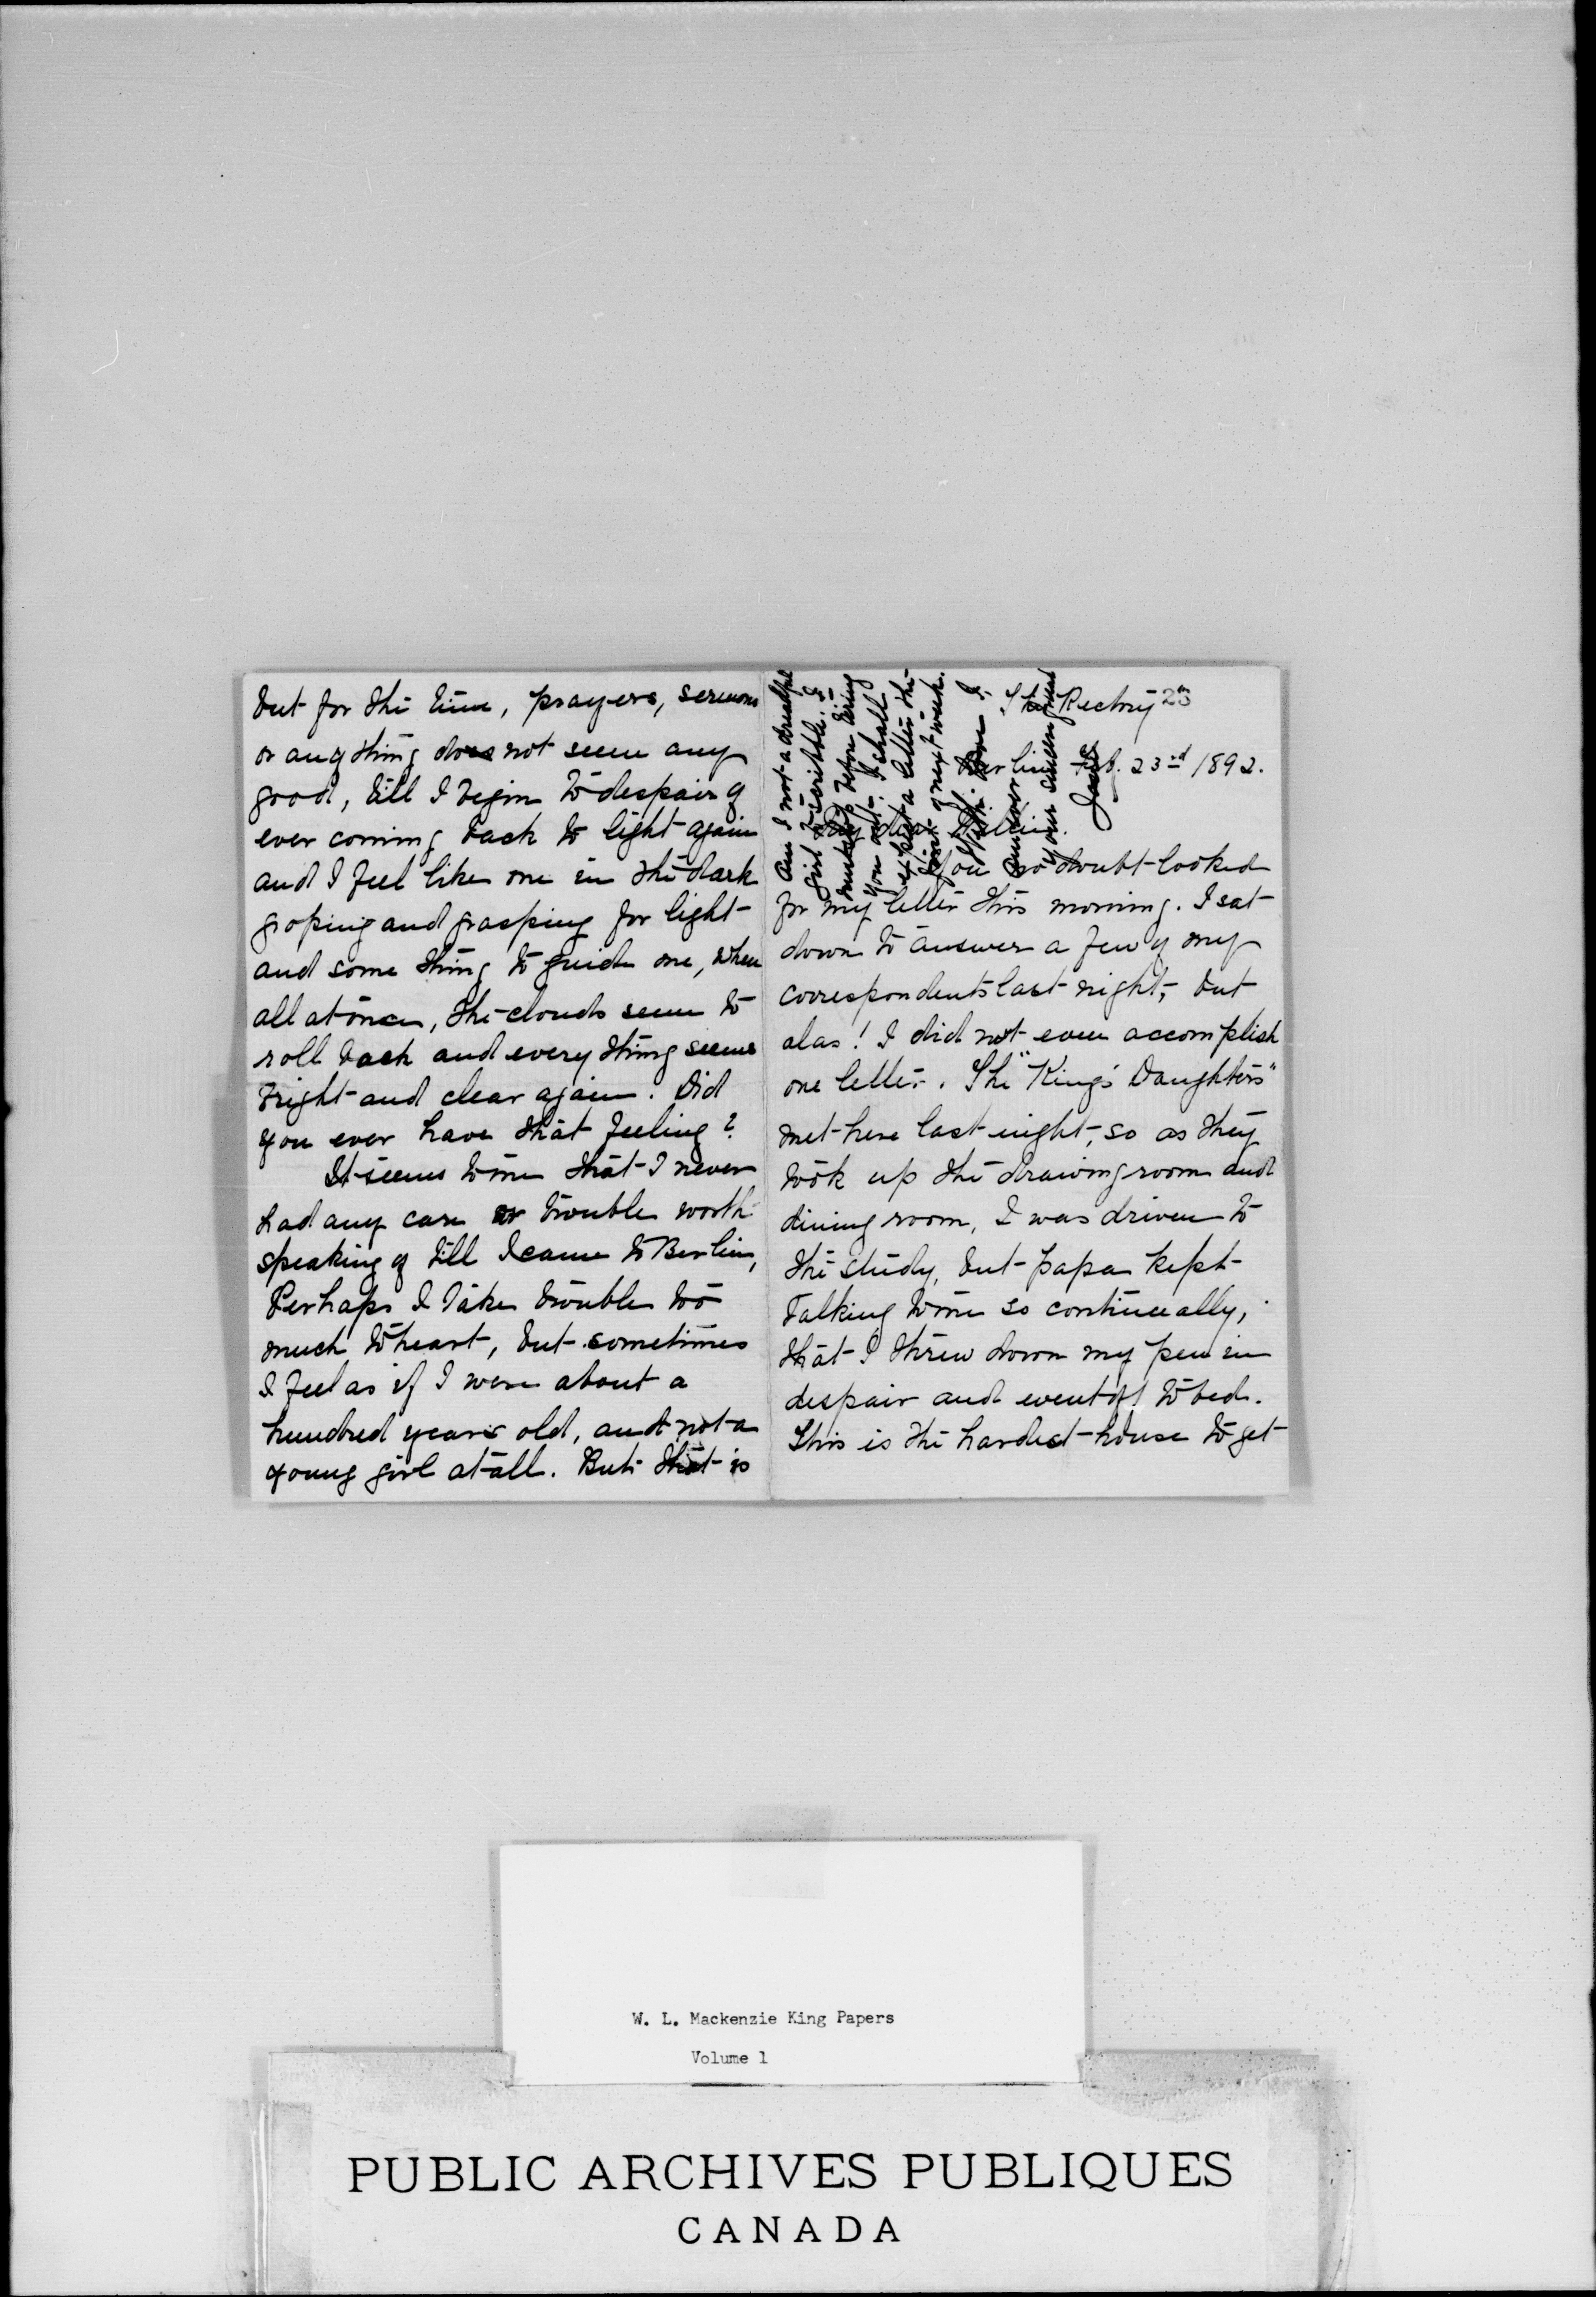 but for the time, prayers, sermons
or anything does not seem any
good, till I begin to despair of
ever coming back to light again
and I feel like one in the dark
groping and grasping for light
and some thing to guide me, when
all at once, the clouds seem to
roll back and every thing seems
bright and clear again. Did
you ever have that feeling?
It seems to me that I never
had any care or trouble worth
speaking of till I came to Berlin,
Perhaps I take trouble too
much to heart, but sometimes
I feel as if I were about a
hundred years old, and not a
young girl at all. But that is
The Rectory 23
Berlin Feb. 23rd 1892.
My dear
You no doubt looked
for my letter this morning. I sat
down to answer a few of my
correspondents last night, but
alas! I did not even accomplish
one letter. The "King's Daughters"
met here last night, so as they
took up the drawing room and
dining room, I was driven to
the study, but papa kept
talking to me so continually,
that I threw down my pen in
despair and went off to bed.
This is the hardest house to get
Am I not a dreadful
girl to scribble. I
must stop before tiring
you out. I shall
expect a letter the
first of next week.
your sincere friend
W. L. Mackenzie King Papers
Volume 1
PUBLIC ARCHIVES PUBLIQUES
CANADA